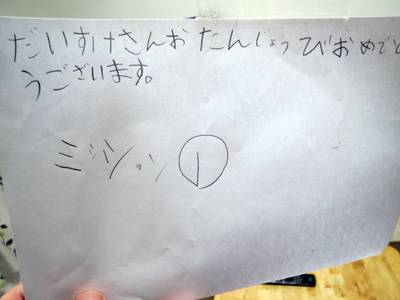 だいすけさんおたんじょうびおめでと
うございます。
ミッション①